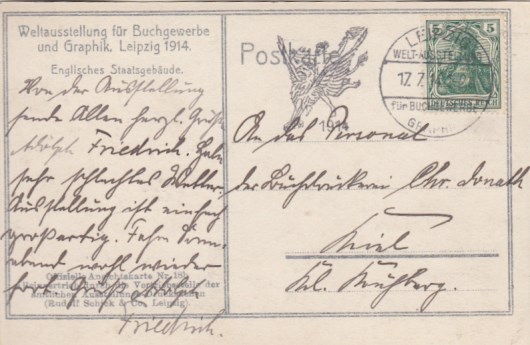 Weltausstellung für Buchgewerbe
und Graphik, Leipzig 1914.
Englisches Staatsgebäude.
Von der Ausstellung
sende Allen herzl. Grüße
Friedrich. Habe
sehr schlechtes Wetter.
Ausstellung ist einfach
großartig. Fahre Sonn-
abend wohl wieder
fort.
Friedrich.
Offizielle Ansichtskarte Nr. 18
(Rudolf Schick & Co., Leipzig).
Postkarte
1914
LEIPZIG
WELT-AUSSTELLUNG
17.7.
für BUCHGEWERBE
GRAPHIK
5
An das Personal
der Buchdruckerei Chr. Donath
Kiel
Kl. Kuhberg.